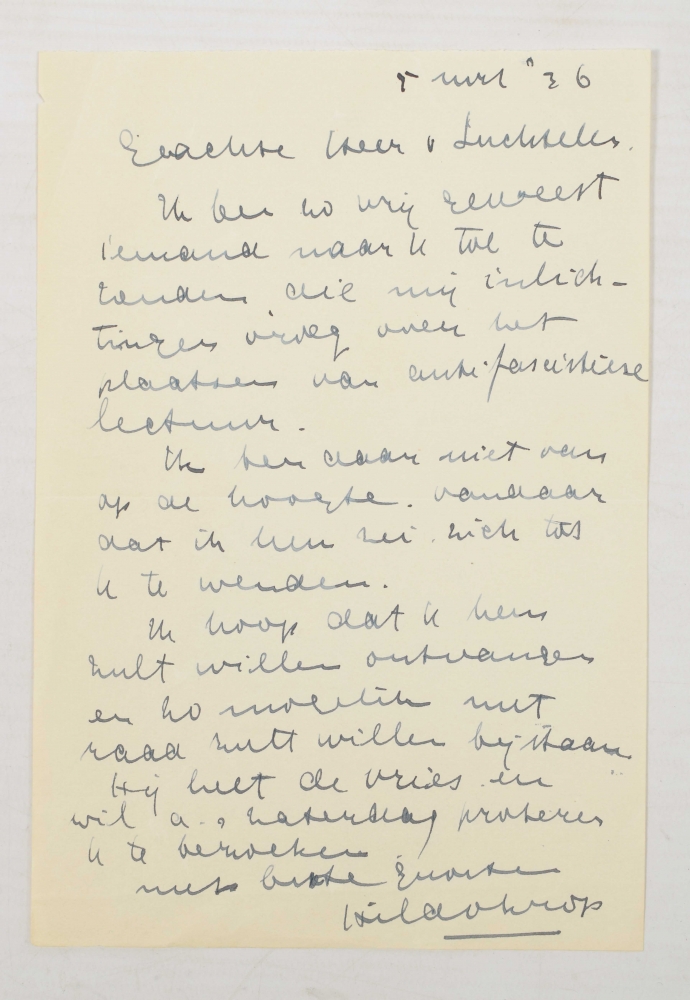 5 mrt "36
Geachte Heer v Luchtelen.
Ik ben zo vrij geweest
iemand naar U toe te
zenden die mij inlich-
tingen vroeg over het
plaatsen van anti-fascistiese
lectuur.
Ik ben daar niet van
op de hoogte. vandaar
dat ik hem zei zich tot
U te wenden.
Ik hoop dat U hem
zult willen ontvangen
en zo mogelik met
raad zult willen bijstaan
Hij heet de Vries en
wil a.s zaterdag proberen
U te bezoeken
met beste groeten
Hildo Krop